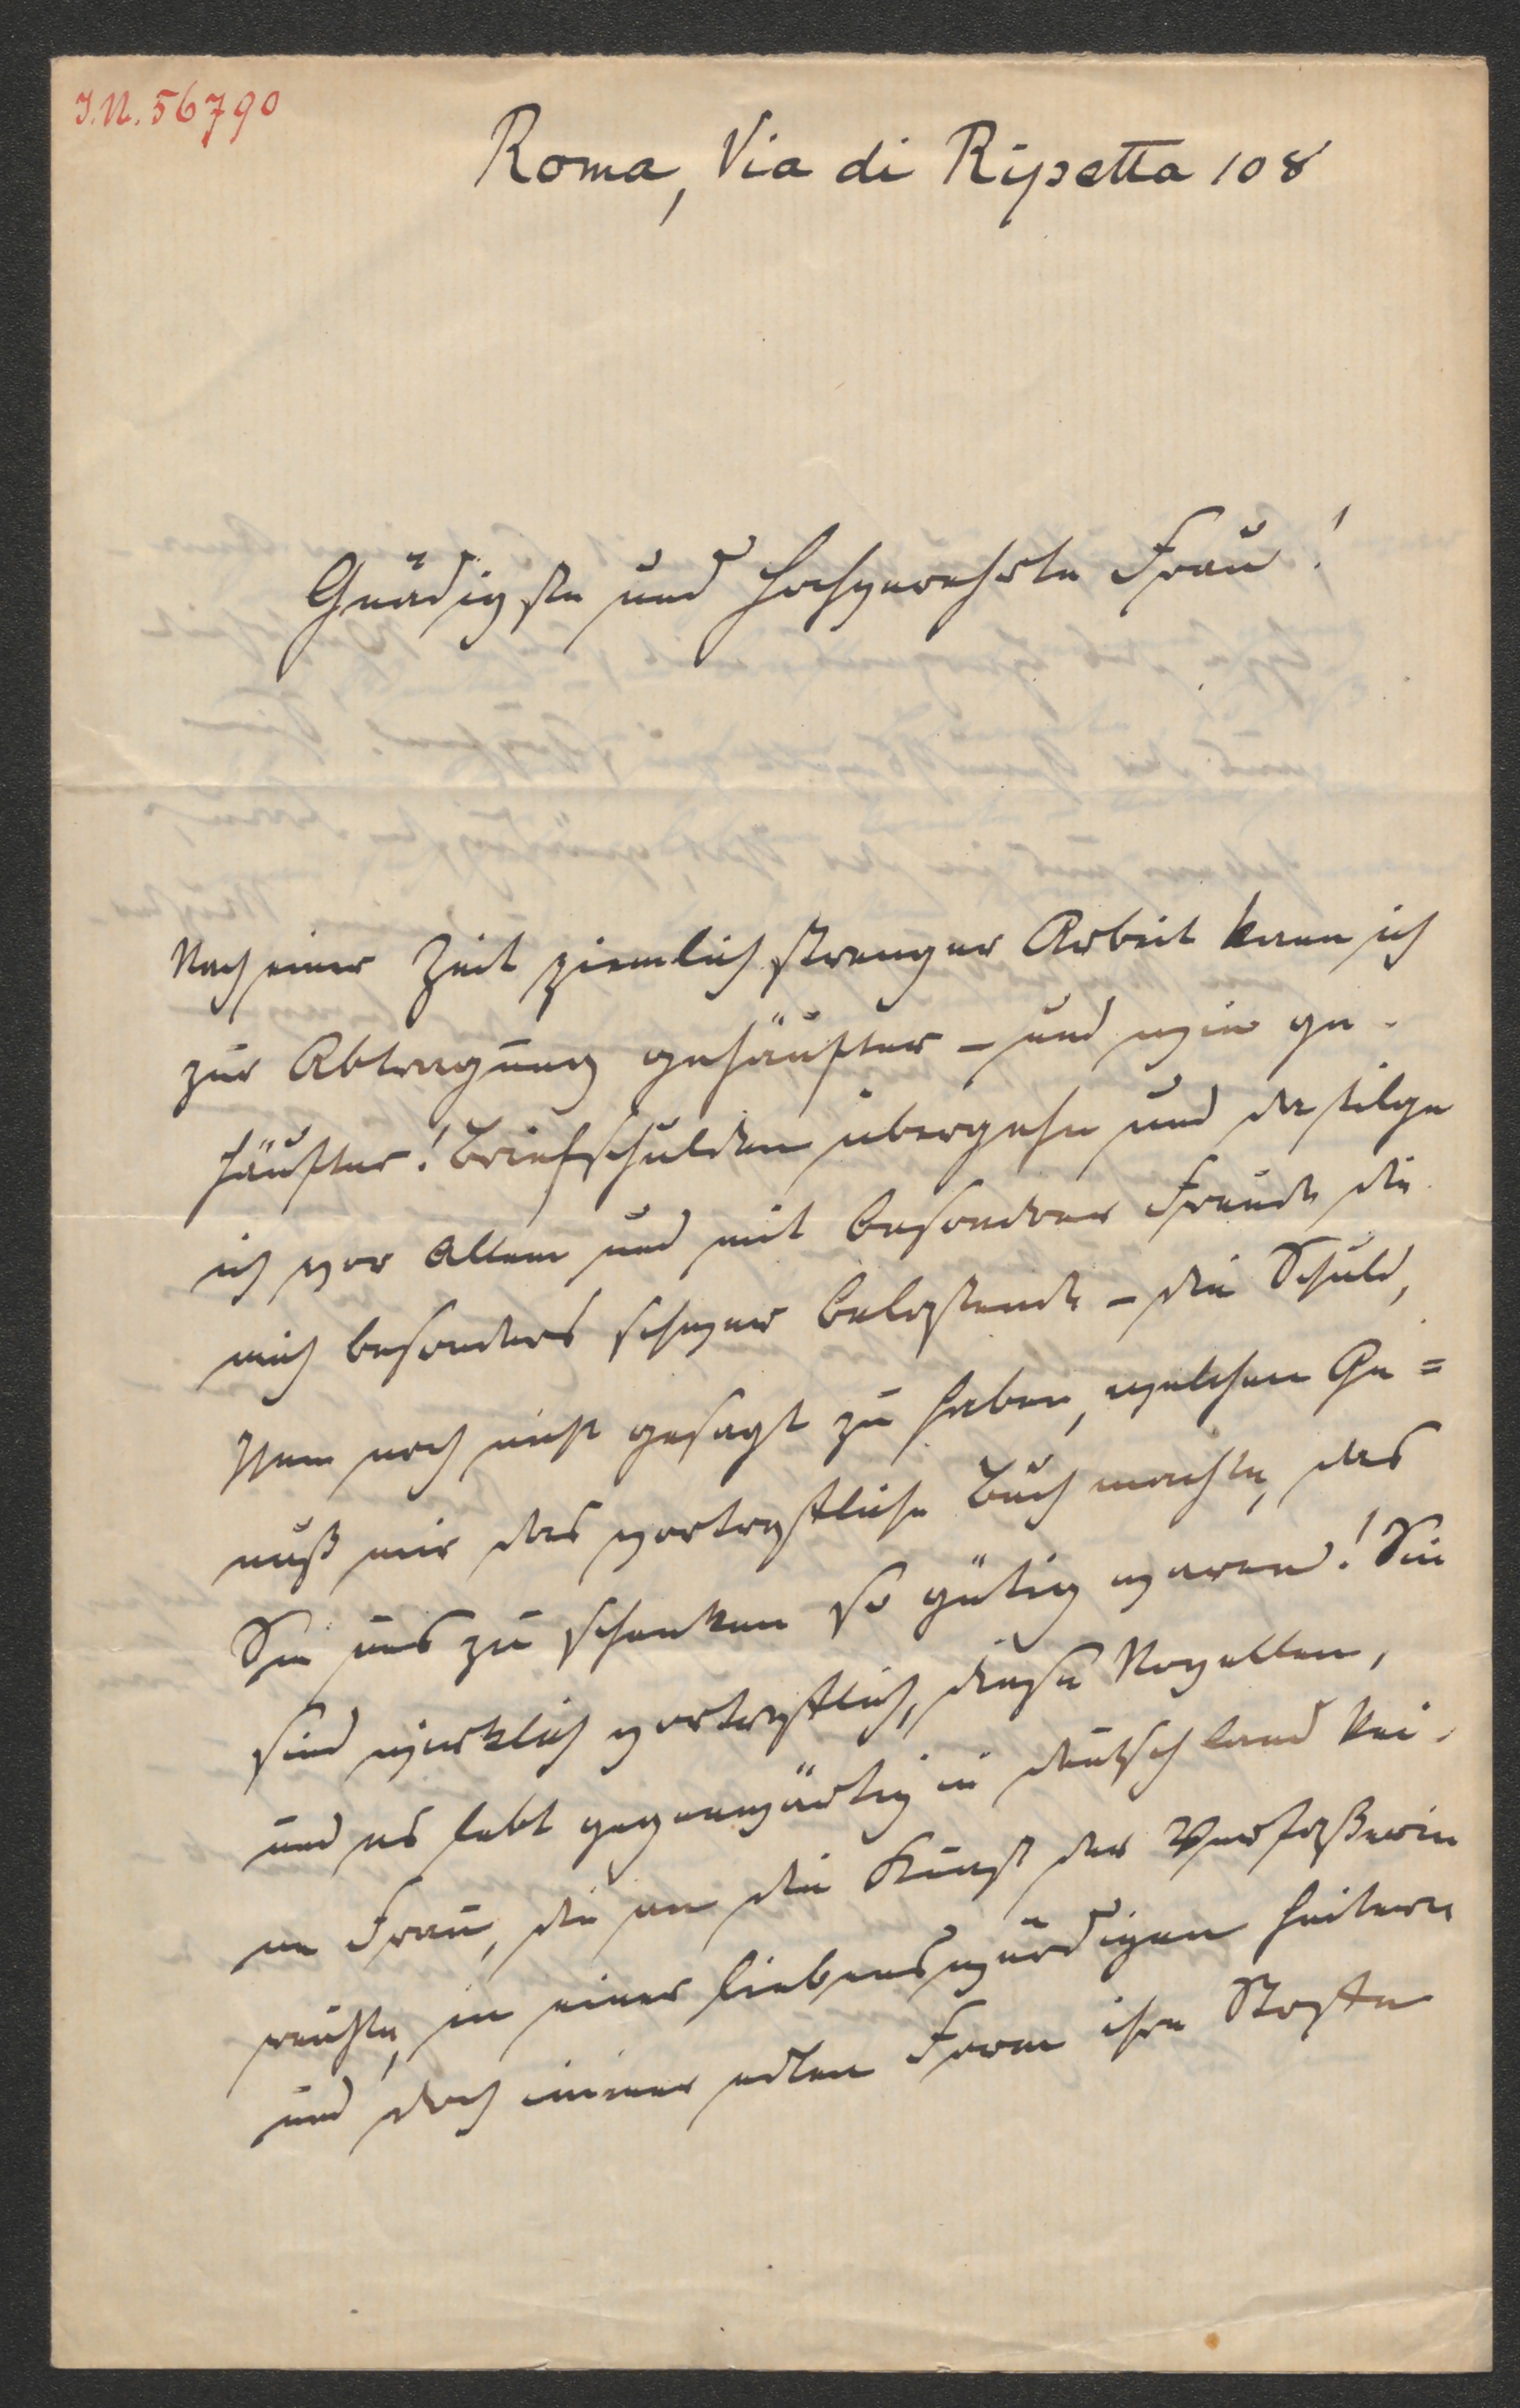 I.N. 56790
Roma, Via di Ripetta 108
Gnädigste und hochverehrte Frau!
Nach einer Zeit ziemlich strenger Arbeit kann ich
zur Abtragung gehäufter – und wie ge-
häufter! Briefschulden übergehn und da tilge
ich vor Allem und mit besondrer Freude die
mich besonders schwer belastende – die Schuld,
Ihnen noch nicht gesagt zu haben, welchen Ge=
nuß mir das vortreffliche Buch machte, das
Sie uns zu schenken so gütig waren! Sie
sind wirklich vortrefflich, diese Novellen,
und es lebt gegenwärtig in Deutschland kei-
ne Frau, die an die Kunst der Verfaßerin
reichte, in einer liebenswürdigen heitern
und doch immer edlen Form ihre Stoffe